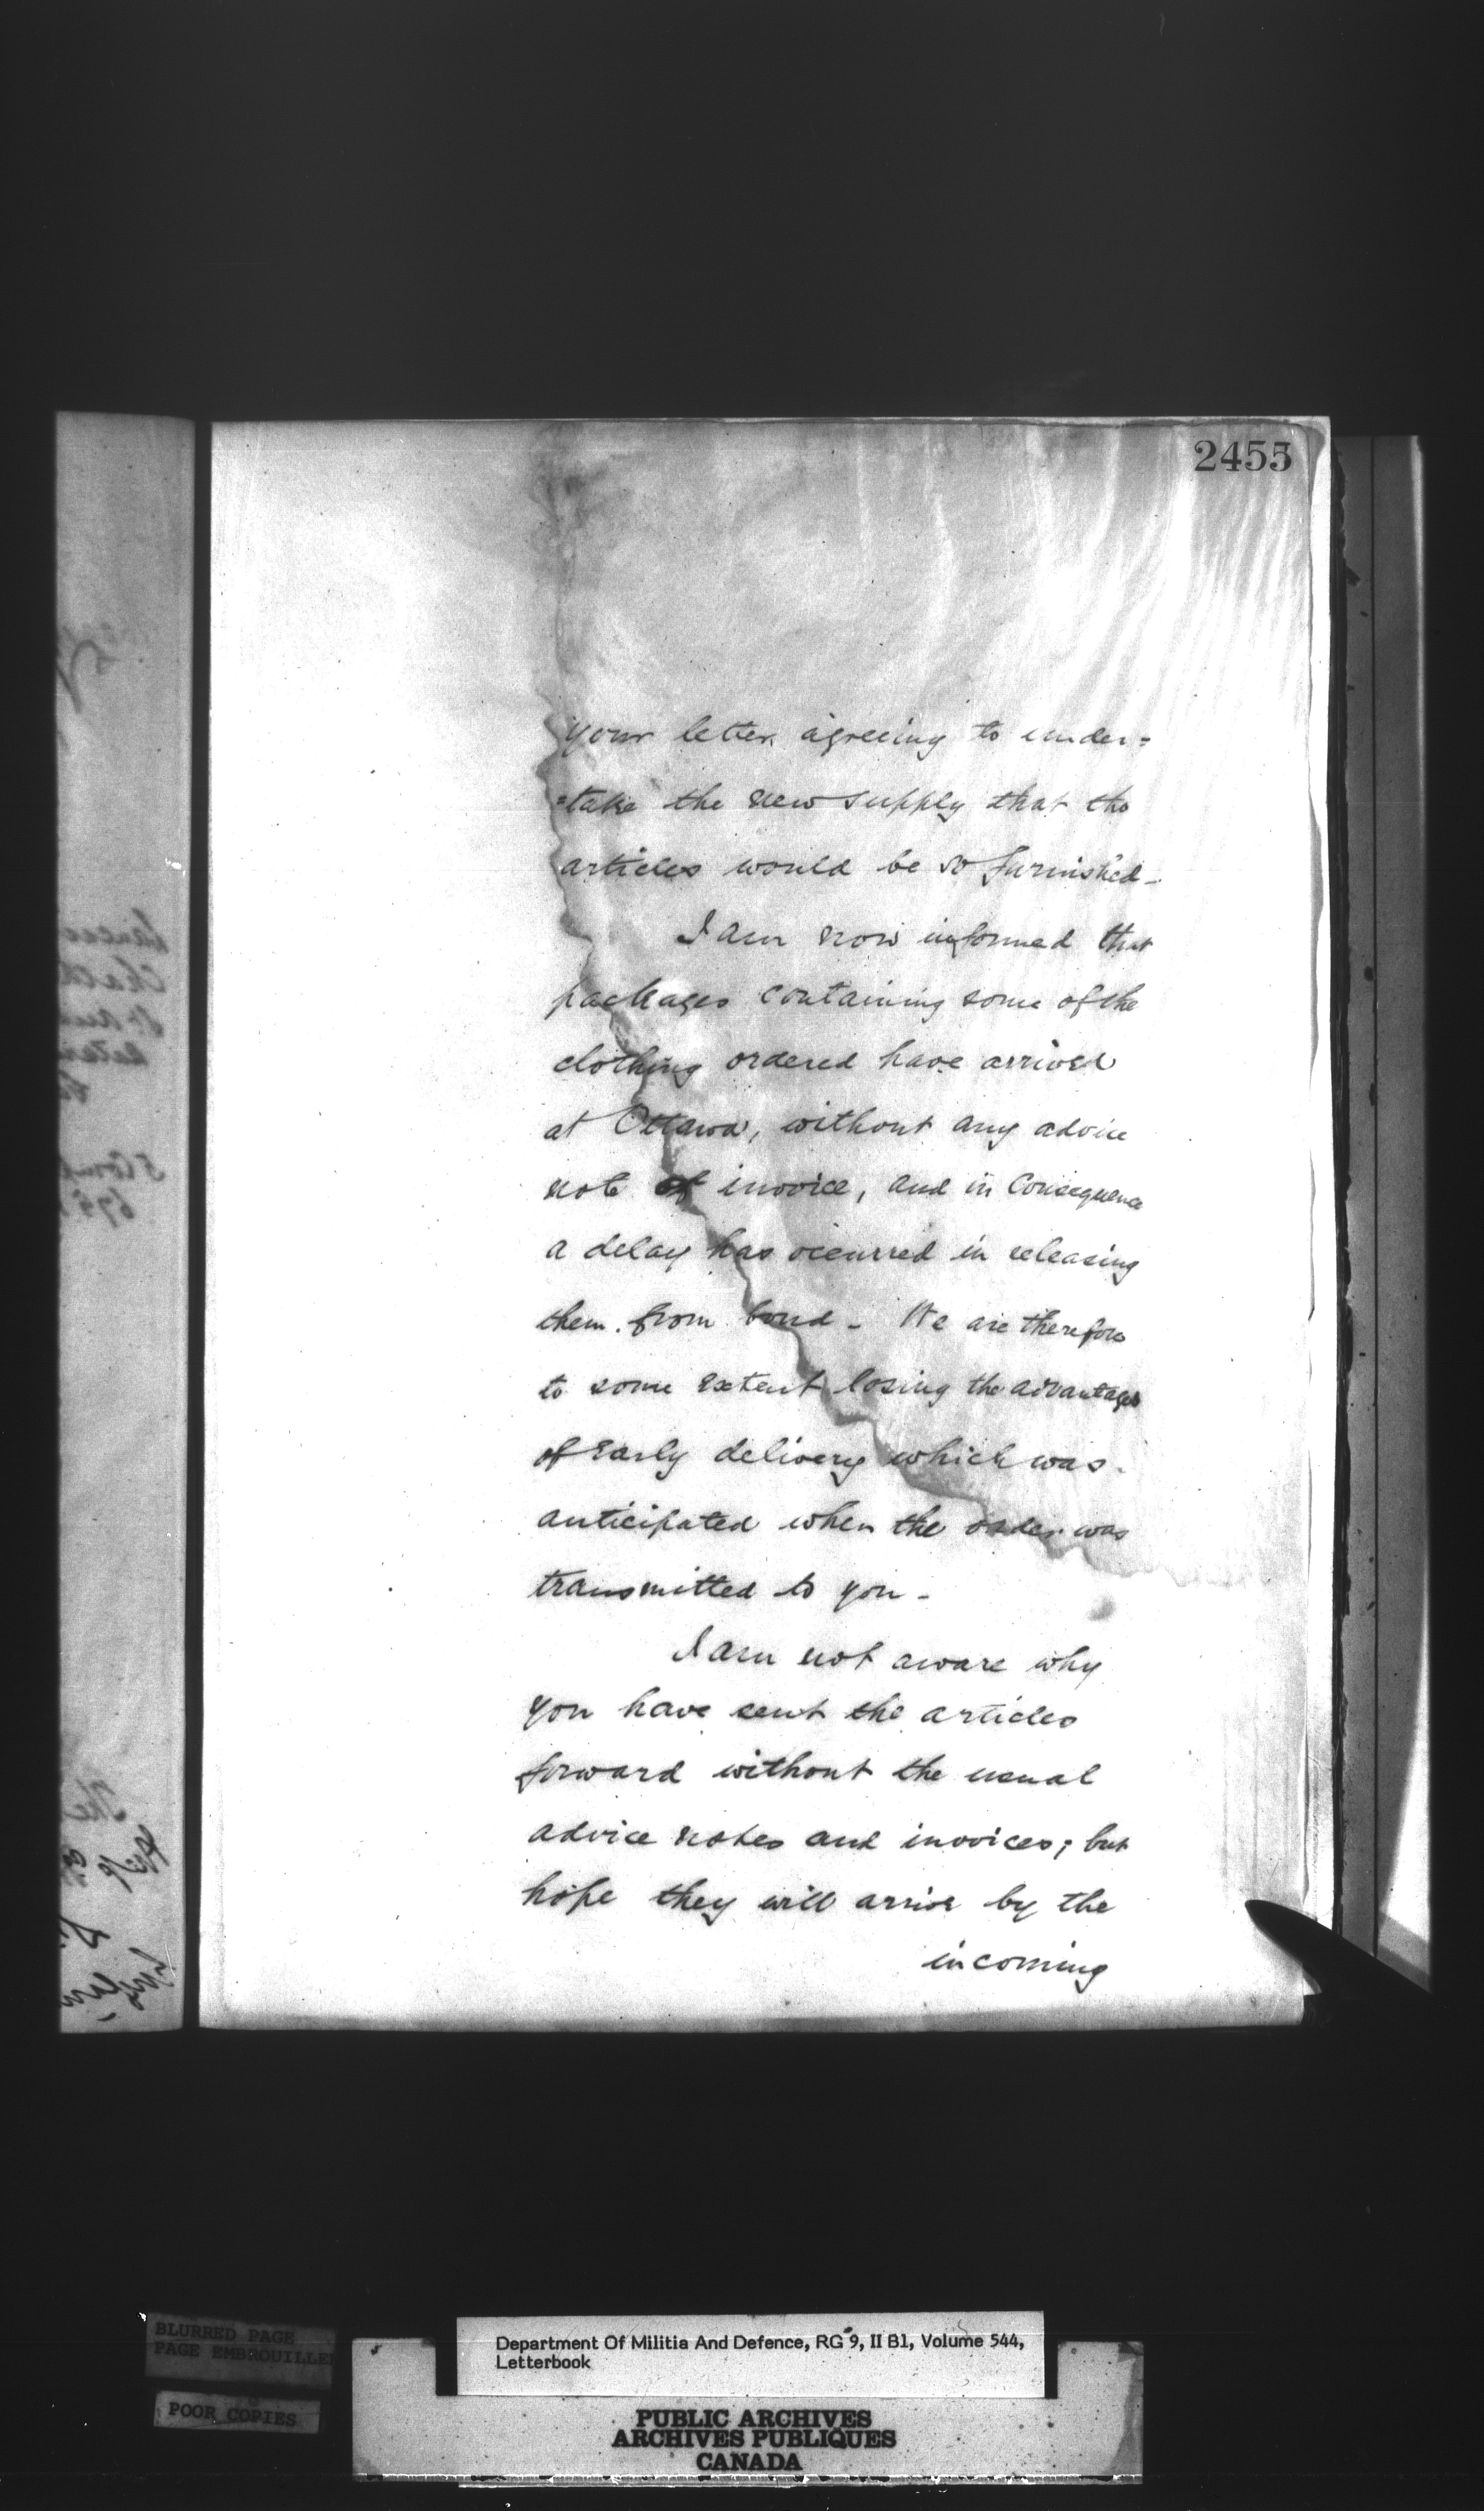 2455
your letter agreeing to under=
=take the new supply that the
articles would be so furnished_
I am now informed that
packages containing some of the
clothing ordered have arrived
at Ottawa, without any advice
note of invoice, and in consequence
a delay has occurred in releasing
them from bond_ We are therefore
to some extent losing the advantages
of early delivery which was
anticipated when the order was
transmitted to you_
I am not aware why
you have sent the articles
forward without the usual
advice notes and invoices; but
hope they will arrive by the
incoming
BLURRED PAGE
PAGE EMBROUILLEE
POOR COPIES
Department Of Militia And Defence, RG 9, II B1, Volume 544,
Letterbook
PUBLIC ARCHIVES
ARCHIVES PUBLIQUES
CANADA